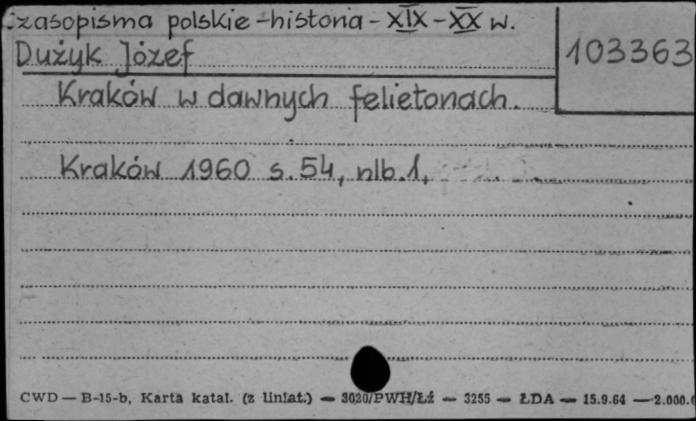 Czasopisma polskie-historia-XIX-XX w.
Dużyk Józef
103363
Kraków w dawnych felietonach.
Kraków 1960 s.54, nlb.1,
CWD — B-15-b, Karta katal. (z liniat.) — 3020/PWH/Łź — 3255 — ŁDA — 15.9.64 — 2.000.0